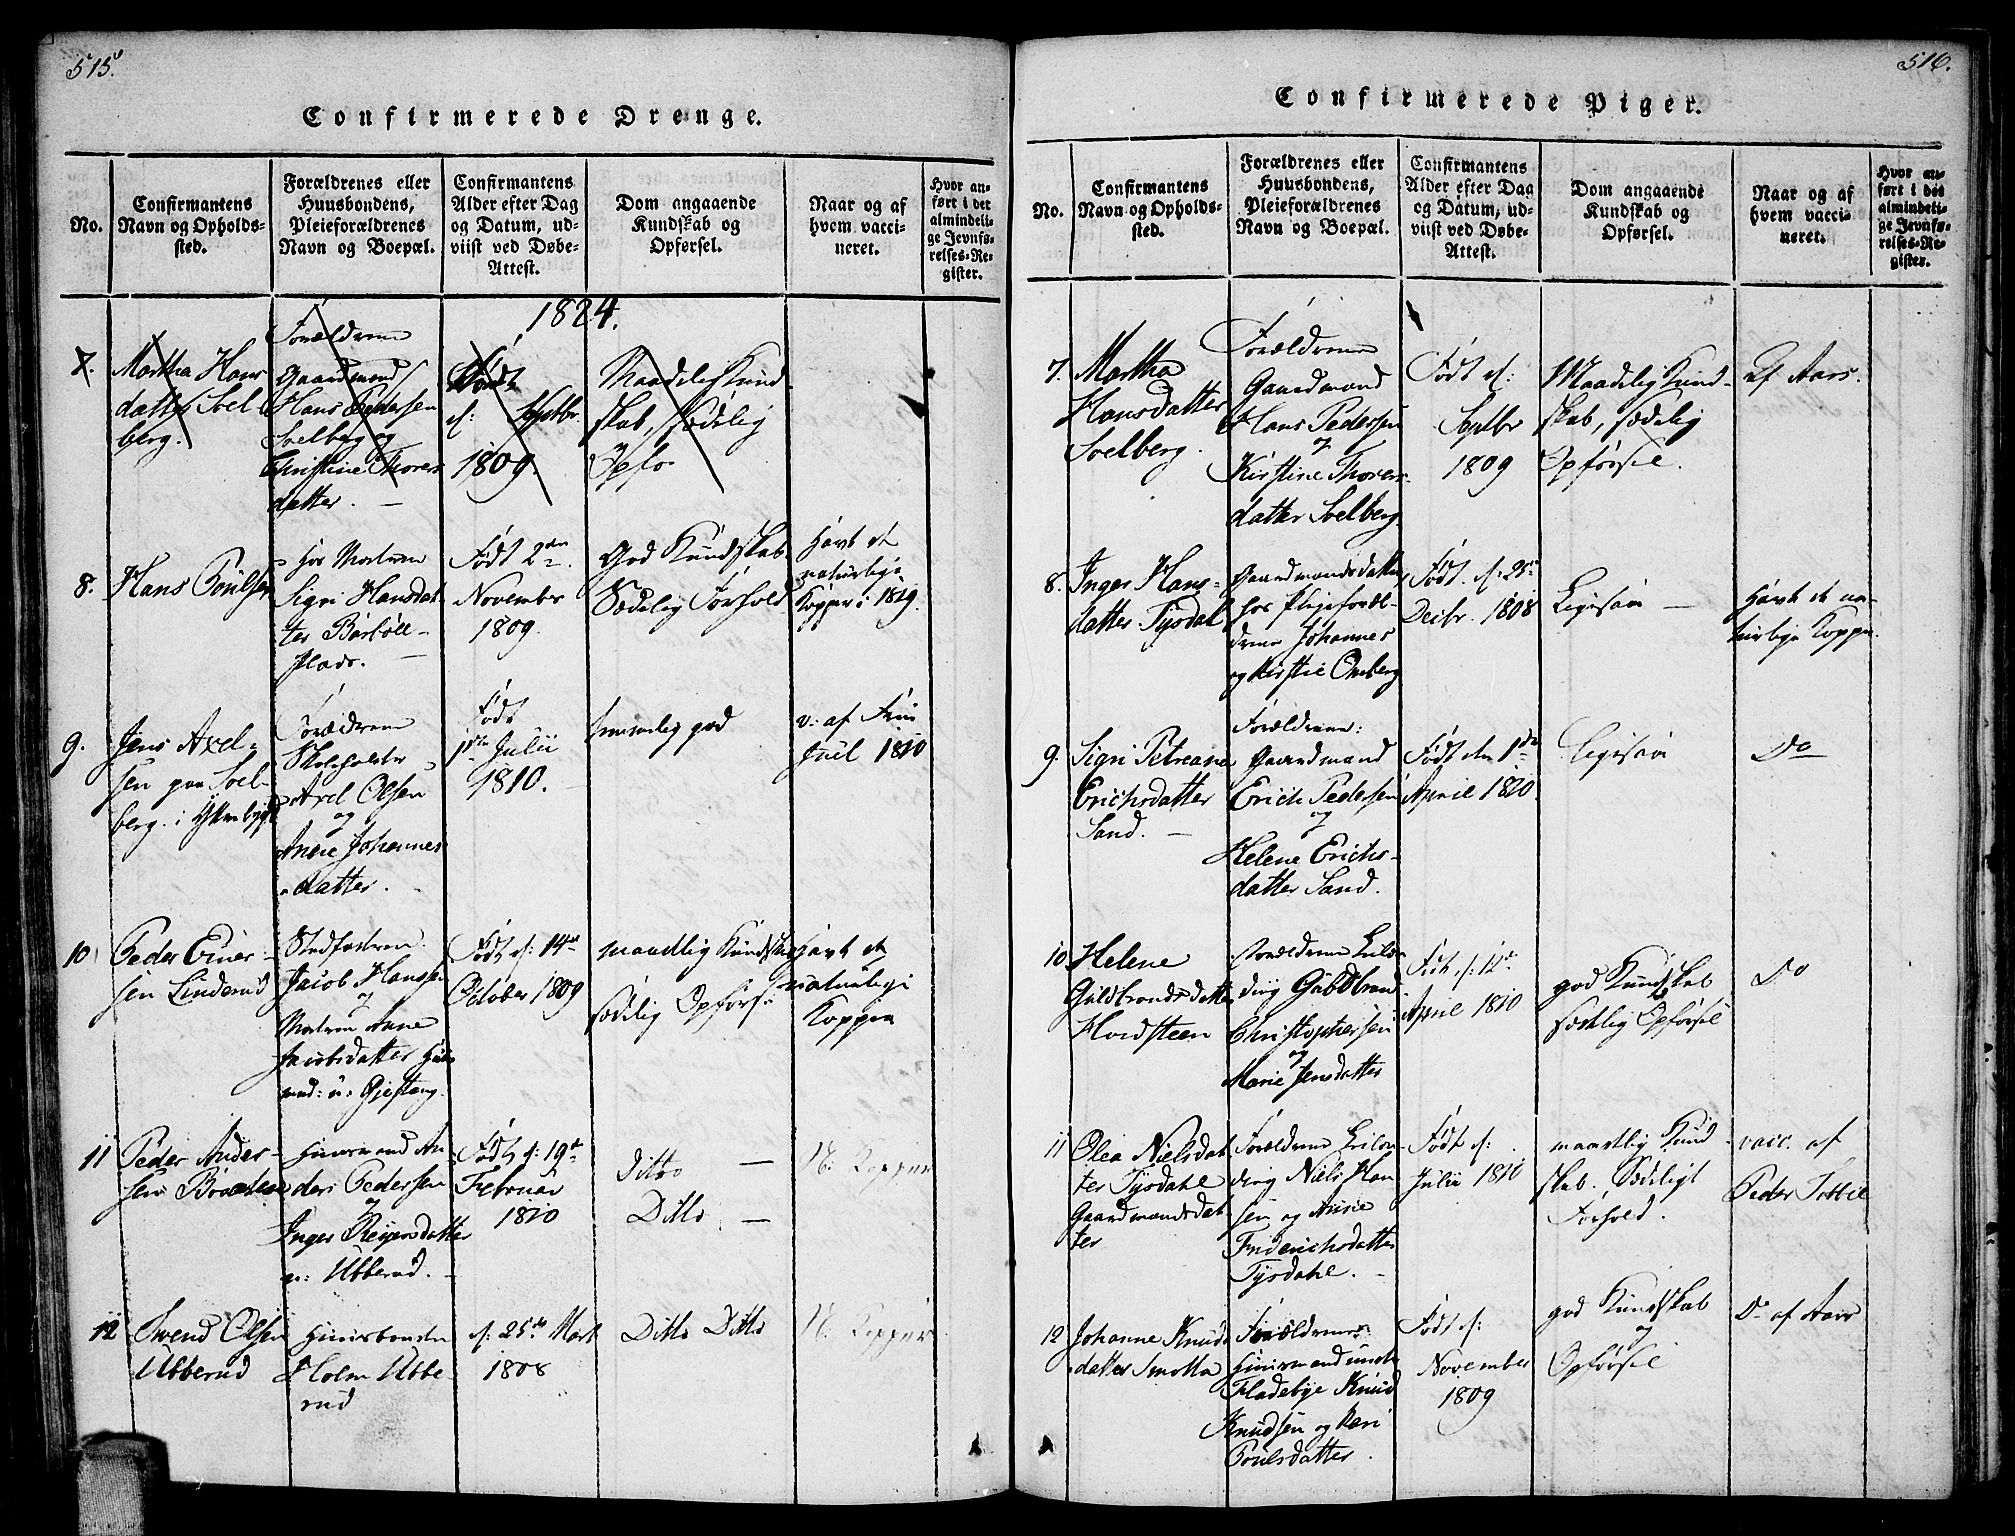 515.
Confirmerede Drenge.
No.
Confirmantens
Navn og Opholds-
sted.
Forældrenes eller
Huusbondens,
Pleieforældrenes
Navn og Boepæl.
Confirmantens
Alder efter Dag
og Datum, ud-
viist ved Døbe-
Attest.
Dom angaaende
Kundskab og
Opførsel.
Naar og af
hvem vacci-
neret.
Hvor an-
ført i det
almindeli-
ge Jevnfø-
relses-Re-
gister.
1824.
7.
Martha Hans
datter Soel-
berg.
Forældrene
Gaardmand
Hans Pedersen
Soelberg og
Christine Thores
datter.
Født
d: Septbr.
1809
Maadelig Kund
skab, Sædelig
Opfø
8.
Hans Poulsen
hos Moderen
Sigri Hansdat-
ter
Plads.
Født 2den
November
1809.
God Kundskab
Sædelig Forhold
Havt de
naturlige
Kopper i 1819.
9.
Jens Axel-
sen paa Soel-
berg. i
Forældrene
Skoleholder
Axel Olsen
og
Anne Johannes
datter.
Født
1ste Julii
1810.
temmelig god
v: af Fru
Juel 1810
10
Peder Einer-
sen Linderud
Stedfaderen
Jacob Hansen
og
Moderen Anne
Jacobsdatter
Gjestang.
Født d: 14de
October 1809
maadlig Kundskab
sædelig Opførsel
Havt de
naturlige
Kopper
11
Peder Ander-
sen
Huusmand An-
ders Pedersen
og
Inger Reyersdatter
u: Ubberud.
Født d: 19de
Februar
1810
Ditto
Ditto
N. Kopper
12
Svend Olsen
Ubberud
Huusbonden
Holm Ubbe-
rud
d: 25de Mart
1808
Ditto Ditto
N. Kopper
516.
Confirmerede Piger.
No.
Confirmantens
Navn og Opholds-
sted.
Forældrenes eller
Huusbondens,
Pleieforældrenes
Navn og Boepæl.
Confirmantens
Alder efter Dag
og Datum, ud-
viist ved Døbe-
Attest.
Dom angaaende
Kundskab og
Opførsel.
Naar og af
hvem vacci-
neret.
Hvor an-
ført i det
almindeli-
ge Jevnfø-
relses-Re-
gister.
7.
Martha
Hansdatter
Soelberg.
Forældrene
Gaardmand
Hans Pedersen
og
Kirstine Thores-
datter Soelberg
Født d:
Septbr
1809
Maadelig Kund-
skab, sædelig
Opførsel.
af Aars.
8.
Inger Hans-
datter Tysdal
Gaardmandsdatter
hos Plejeforæl-
drene Johannes
og Kirstie Omberg
Født. d: 25de
Decbr. 1808
Ligesaa
Havt de na-
turlige Kopper.
9.
Sigri Petreana
Erichsdatter
Sand.
Forældrene:
Gaardmand
Erich Pedersen
og
Helene Erichs-
datter Sand.
Født den 1de
April 1810.
Ligesaa
Do
10
Helene
Guldbrandsdatter
Hvidsteen
Forældrene
Guldbrand
Christophersen
og
Marie Jensdatter
Født d: 12de
April 1810
god Kundskab
sædelig Opførsel
Do
11
Olea Nielsdat
ter Tysdahl
Gaardmandsdat
ter
Forældrene
Niels Han
sen og Anne
Friderichsdatter
Tysdahl.
Født d:
Julii 1810
maadlig Kund
skab. Sædeligt
Forhold.
vacc. af
Peder
12
Johanne Knuds
datter Smotta
Forældrene
Huusmand under
Fladebye Knud
Knudsen og Kari
Poulsdatter.
Født d:
November
1809
god Kundskab
og
Opførsel
Do af Aars